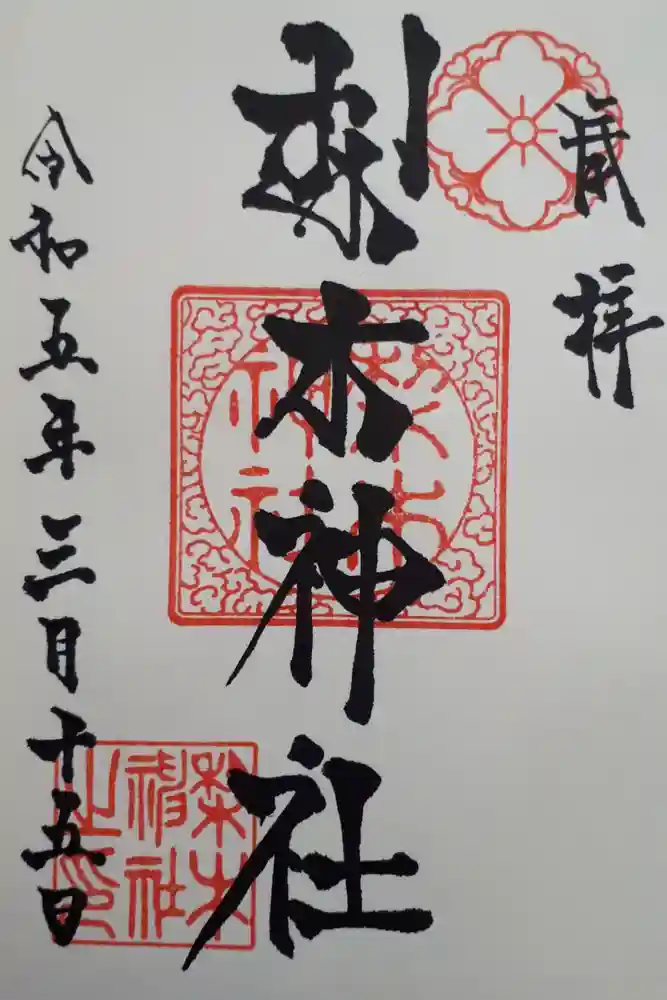 拝
梨木神社
令和五年三月十五日
梨木
神社
梨木
神社
之印